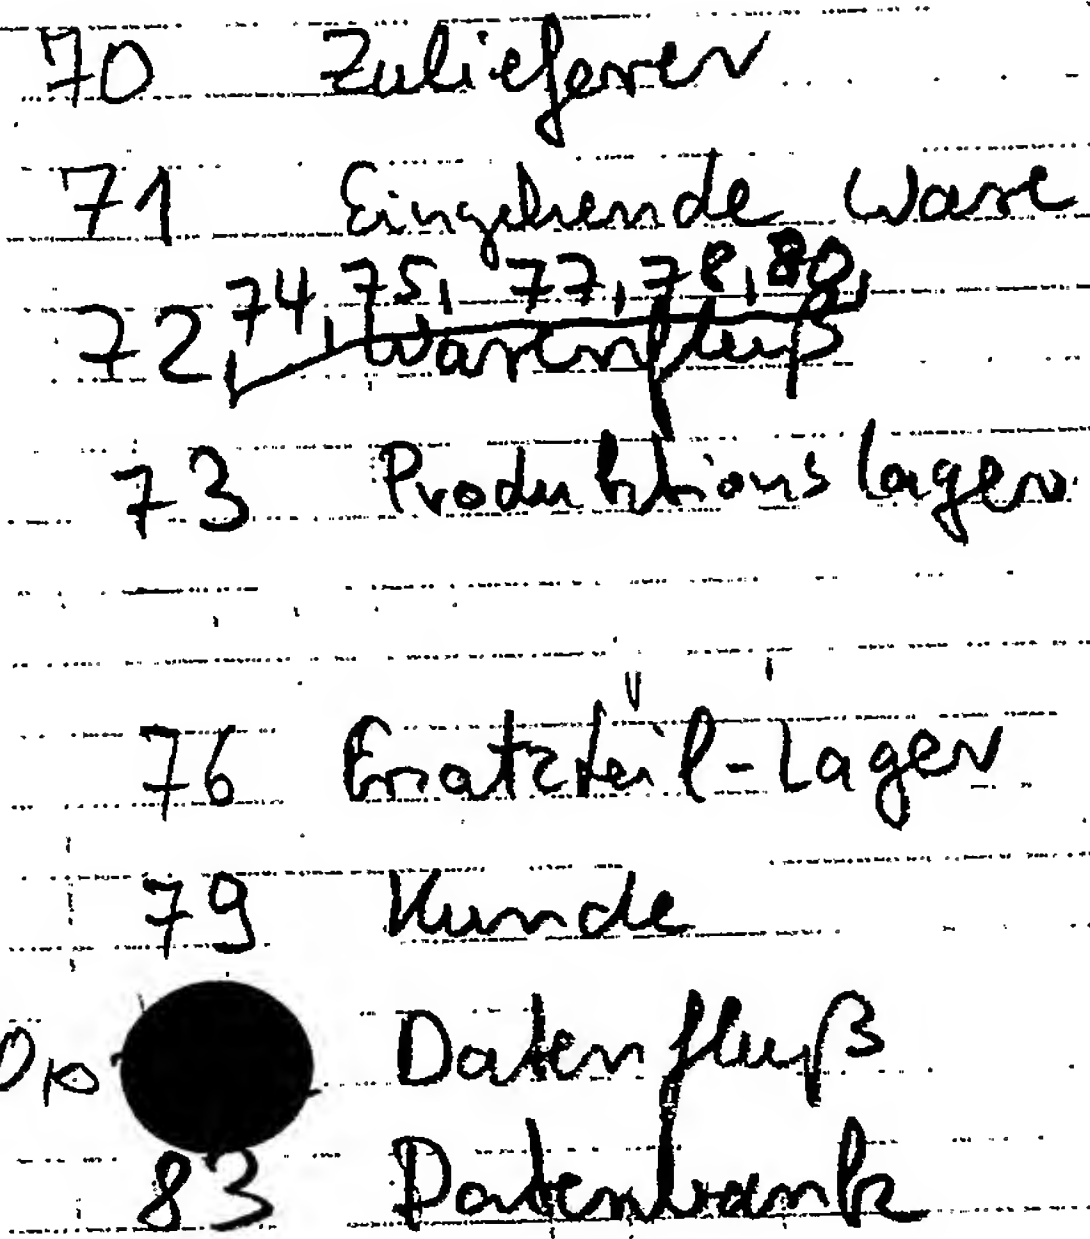 70 Zulieferer
71 Eingehende Ware
74, 75, 77, 78, 80,
72, Warenfluß
73 Produktionslager
76 Ersatzteil-Lager
79 Kunde
Datenfluß
83 Datenbank